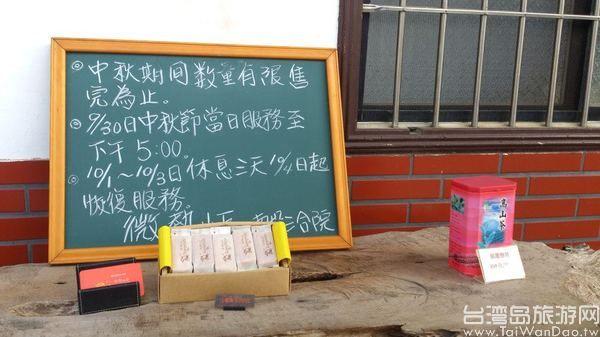 ◎中秋期间數量有限售
完為止。
◎9/30日中秋節當日服務至
下午5:00。
◎10/1~10/3日休息三天10/4日起
恢復服務。
微熱山丘 三合院
高山茶
台湾岛旅游网
www.TaiWanDao.tw